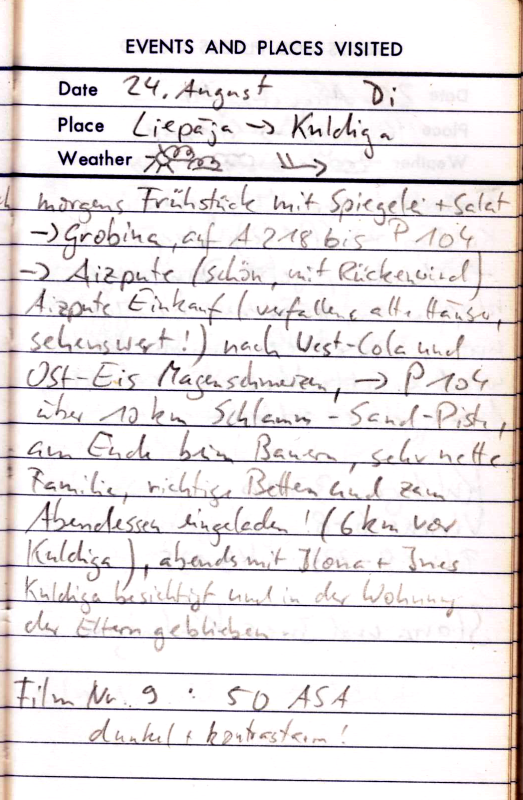 EVENTS AND PLACES VISITED
Date 24. August Di
Place Liepāja -> Kuldiga
Weather
morgens Frühstück mit Spiegelei + Salat
-> Grobina, auf A218 bis P104
-> Aizpute (schön, mit Rückenwind)
Aizpute Einkauf (verfallene alte Häuser,
sehenswert!) nach West-Cola und
Ost-Eis Magenschmerzen, -> P104
über 10 km Schlamm-Sand-Piste,
am Ende beim Bauern, sehr nette
Familie, richtige Betten und zum
Abendessen eingeladen! (6 km vor
Kuldiga), abends mit Ilona + Ines
Kuldiga besichtigt und in der Wohnung
der Eltern geblieben
Film Nr. 9 : 50 ASA
dunkel + kontrastarm!